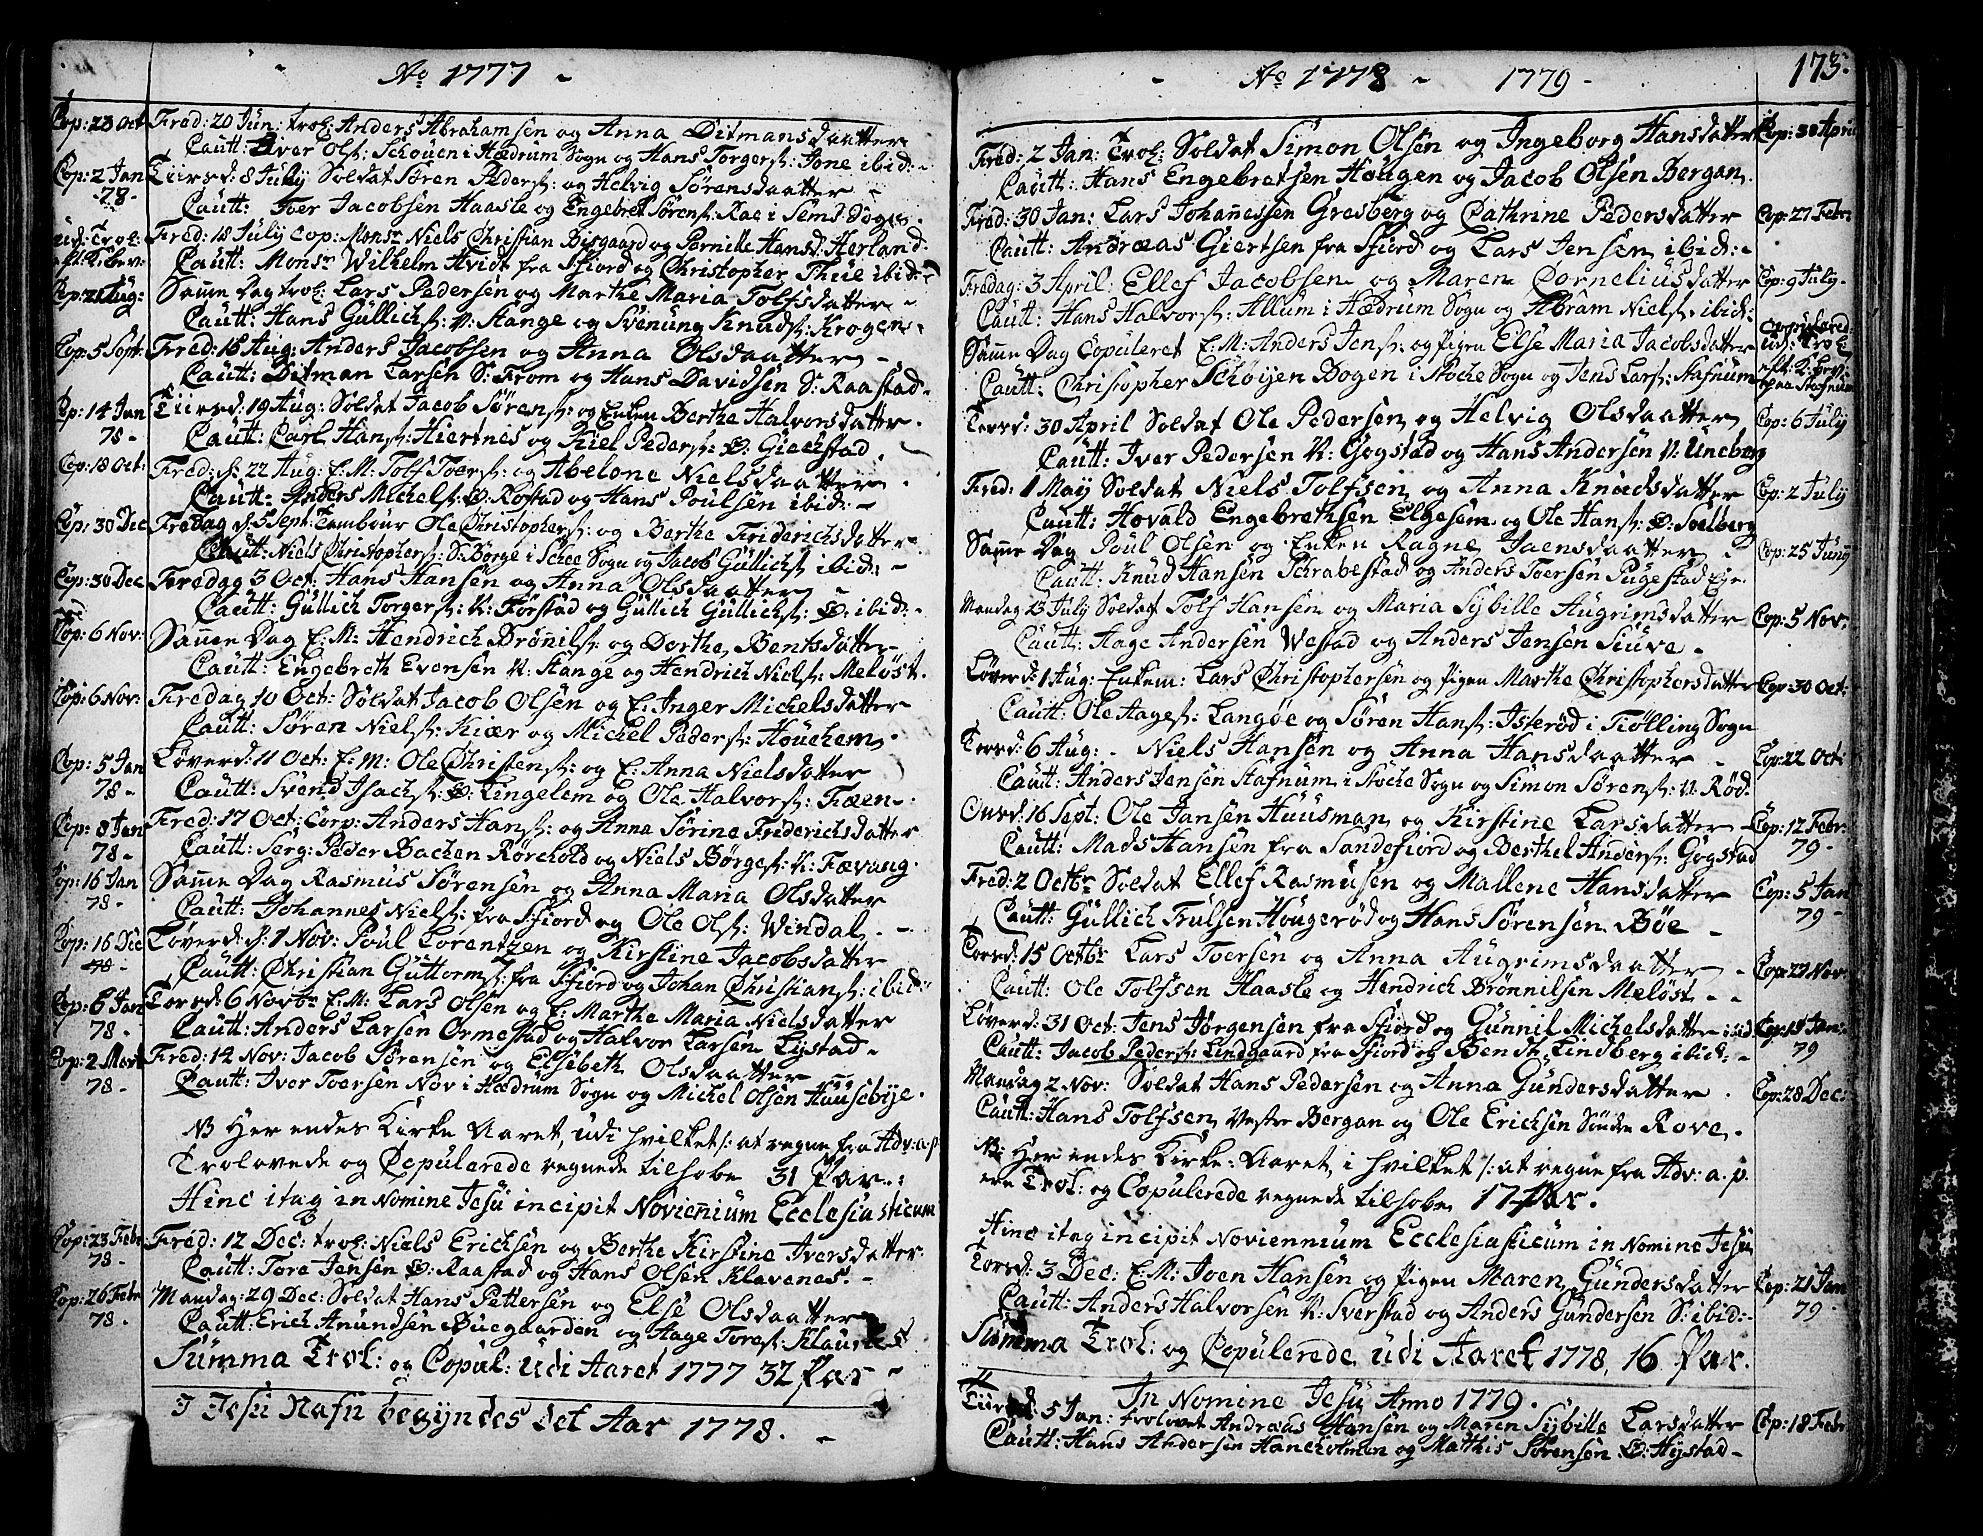 No 1777
Cop: 23 Oct Fred: 20 Jun: trol: Anders Abrahamsen og Anna Ditmansdaatter
Cautt: Iver Ols: Schouen i Hædrum Sogn og Hans Torgers: Jone ibid:
Cop: 2 Jan 78 Tiirsd: 8 July Soldat Søren Peders: og Helvig Sørensdaatter
Cautt: Toer Jacobsen Haasle og Engebret Sørens: Rae i Sems Sogn
ud: Trol: eft: K: Bev: Fred: 18 July Cop: Monsr Niels Christian Bisgaard og Pernille Hansd: Herland
Cautt: Monsr Wilhelm Hvidt fra Fiord og Christopher Thue ibid:
Cop: 21 Aug: Samme Dag trol: Lars Pedersen og Marthe Maria Tolfsdatter
Cautt: Hans Gullichs: N: Hange og Svenung Knuds: Krogen
Cop: 5 Sept: Fred: 15 Aug: Anders Jacobsen og Anna Olsdaatter
Cautt: Ditman Larsen S: From og Hans Davidsen S: Raastad
Cop: 14 Jan 78 Tiirsd: 19 Aug: Soldat Jacob Sørens: og Enken Berthe Halvorsdatter
Cautt: Carl Hans: Hiertnes og Kiel Peders: Ø: Gieckstad
Cop: 18 Oct: Fred: d: 22 Aug: E: M: Tolf Toers: og Abelone Nielsdaatter
Cautt: Anders Michels: Ø: Rostad og Hans Poulsen ibid:
Cop: 30 Dec Fredag d: 5 Sept: Tambour Ole Christophers: og Berthe Friderichsdatter
Cautt: Niels Christophers: S: Børge i Schee Sogn og Jacob Gullichs: ibid:
Cop: 30 Dec Fredag 3 Oct: Hans Hansen og Anna Olsdaatter
Cautt: Gullich Torgers: N: Forstad og Gullich Gullichs: Ø: ibid:
Cop: 6 Nov: Samme Dag E: M: Hendrich Brønils: og Dorthe Bentsdatter
Cautt: Engebreth Evensen N: Hange og Hendrich Niels: Meløst
Cop: 6 Nov: Fredag 10 Oct: Soldat Jacob Olsen og E: Inger Michelsdatter
Cautt: Søren Niels: Kiær og Michel Peders: Houchem
Cop: 5 Jan 78 Løverd: 11 Oct: E: M: Ole Christens: og E: Anna Nielsdatter
Cautt: Svend Isachs: Ø: Lingelem og Ole Halvors: Fæen
Cop: 8 Jan 78 Fred: 17 Oct: Corp: Anders Hans: og Anna Sørine Friderichsdatter
Cautt: Serg: Peder Bachen Rørchold og Niels Børges: N: Fævang
Cop: 16 Jan 78 Samme Dag Rasmus Sørensen og Anna Maria Olsdatter
Cautt: Johannes Niels: fra Fiord og Ole Ols: Windal
Cop: 16 Dec Løverd: d: 1 Nov: Poul Lorentzen og Kirstine Jacobsdatter
Cautt: Christian Guttorms: fra Fiord og Johan Christians: ibid:
Cop: 6 Jan 78 Torsd: 6 Novbr E: M: Lars Olsen og E: Marthe Maria Nielsdatter
Cautt: Anders Larsen Ormestad og Halvor Larsen Lystad
Cop: 2 Mart 78 Fred: 12 Nov: Jacob Sørensen og Elsebeth Olsdaatter
Cautt: Iver Toersen Nov i Hædrum Sogn og Michel Olsen Huusebye
NB Her endes Kirke Aaret, udi hvilket /: at regne fra Adv: a. p.
Trolovede og Copulerede regnede tilsobe 31 Par.:
Hinc itaq in Nomine Jesu incipit Noviennium Ecclesiasticum
Cop: 23 Febr 78 Fred: 12 Dec: trol: Niels Erichsen og Berthe Kirstine Iversdatter
Cautt: Tore Jensen Ø: Raastad og Hans Olsen Klavenes
Cop: 26 Febr 78 Mandag: 29 Dec: Soldat Hans Pettersen og Else Olsdaatter
Cautt: Erich Anundsen Buegaarden og Aage Tores: Klavenes
Summa Trol: og Copul: udi Aaret 1777 32 Par
I Jesu Nafn begyndes det Aar 1778.
No 1778 1779 173.
Fred: 2 Jan: Trol: Soldat Simon Olsen og Ingeborg Hansdatter Cop: 30 April
Cautt: Hans Engebretsen Hougen og Jacob Olsen Bergan
Fred: 30 Jan: Lars Johannessen Gresberg og Cathrine Pedersdatter Cop: 27 Febr
Cautt: Andræas Giertsen fra Fiord og Lars Jensen ibid:
Fredag: 3 April: Ellef Jacobsen og Maren Corneliusdatter Cop: 9 July
Cautt: Hans Halvors: Allum i Hædrum Sogn og Abram Niels: ibid:
Samme Dag Copuleret E: M: Anders Jens: og Pigen Else Maria Jacobsdatter Copulered ud: Trol eft: K: Bev: paa Stafnum
Cautt: Christopher Schøyen Bogen i Stoche Sogn og Jens Lars: Stafnum
Torsd: 30 April Soldat Ole Pedersen og Helvig Olsdaatter Cop: 6 July
Cautt: Iver Pedersen N: Gogstad og Hans Andersen N: Uneberg
Fred: 1 Maij Soldat Niels Tolfsen og Anna Knudsdatter Cop: 2 July
Cautt: Hovald Engebrethsen Elgesem og Ole Hans: Ø: Soelberg
Samme Dag Poul Olsen og Enken Ragne Jaensdaatter Cop: 25 Junij
Cautt: Knud Hansen Schrabestad og Anders Toersen Pugestad Eje
Mandag 13 July Soldat Tolf Hansen og Maria Sybille Augrimsdatter Cop: 5 Nov:
Cautt: Aage Andersen Westad og Anders Jensen Stuve
Løverd: 1 Aug: Enkem: Lars Christophersen og Pigen Marthe Christophersdatter Cop: 30 Oct:
Cautt: Ole Aages: Langøe og Søren Hans: Isterød i Tiølling Sogn
Torsd: 6 Aug: Niels Hansen og Anna Hansdaatter Cop: 22 Oct:
Cautt: Anders Jensen Stafnum i Stoche Sogn og Simon Sørens: N: Rød
Onsd: 16 Sept: Ole Jansen Huusman og Kirstine Larsdatter Cop: 12 Febr: 79
Cautt: Mads Hansen fra Sandefiord og Berthel Anders: Gogstad
Fred: 2 Octbr Soldat Ellef Rasmusen og Mallene Hansdatter Cop: 5 Jan 79
Cautt: Gullich Trulsen Hougerød og Hans Sørensen Bøe
Torsd: 15 Octbr Lars Toersen og Anna Augrimsdaatter Cop: 27 Nov:
Cautt: Ole Tolfsen Haasle og Hendrich Brønnilsen Meløst
Løverd: 31 Oct: Jens Jørgensen fra Fiord og Gunnil Michelsdatter ibid: Cop: 15 Jan: 79
Cautt: Jacob Peders: Lindgaard fra Fiord og Bendt Lindberg ibid:
Mandag 2 Nov: Soldat Hans Pedersen og Anna Gundersdatter Cop: 28 Dec:
Cautt: Hans Tolfsen Vestre Bergan og Ole Erichsen Søndre Rove
NB: Her endes Kirke-Aaret, i hvilket /: at regne fra Adv: a. p.
ere Trol: og Copulerede regnede tilsobe 17 Par.
Hinc itaq incipit Noviennium Ecclesiasticum in Nomine Jesu
Torsd: 3 Dec: E: M: Joen Hansen og Pigen Maren Gundersdatter Cop: 21 Jan 79
Cautt: Anders Halvorsen N: Sverstad og Anders Gundersen S: ibid:
Summa Trol: og Copulerede udi Aaret 1778, 16 Par.
In Nomine Jesu Anno 1779.
Tiirsd: 5 Jan: trolovet Andreas Hansen og Maren Sybille Larsdatter Cop: 18 Febr
Cautt: Hans Andersen Haneholmen og Mathis Sørensen Ø: Hystad